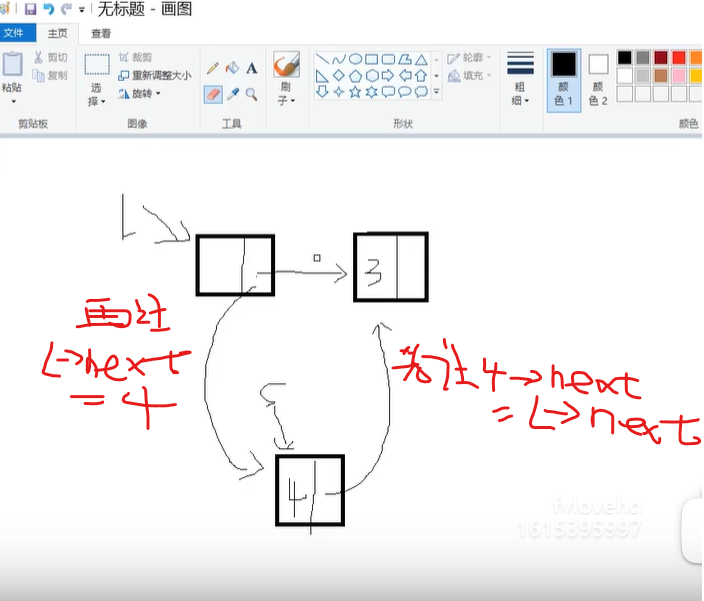 无标题 - 画图
文件 主页 查看
剪切
复制
粘贴
剪贴板
选择
裁剪
重新调整大小
旋转
图像
工具
刷子
形状
轮廓
填充
粗细
颜色 1
颜色 2
颜色
L
3
再让
L->next
= 4
先让 4->next
= L->next
S
4
fvloveha
1615395997